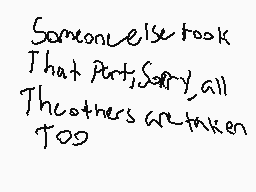 Someone else took
That part, Sorry, all
The others are taken
TOO